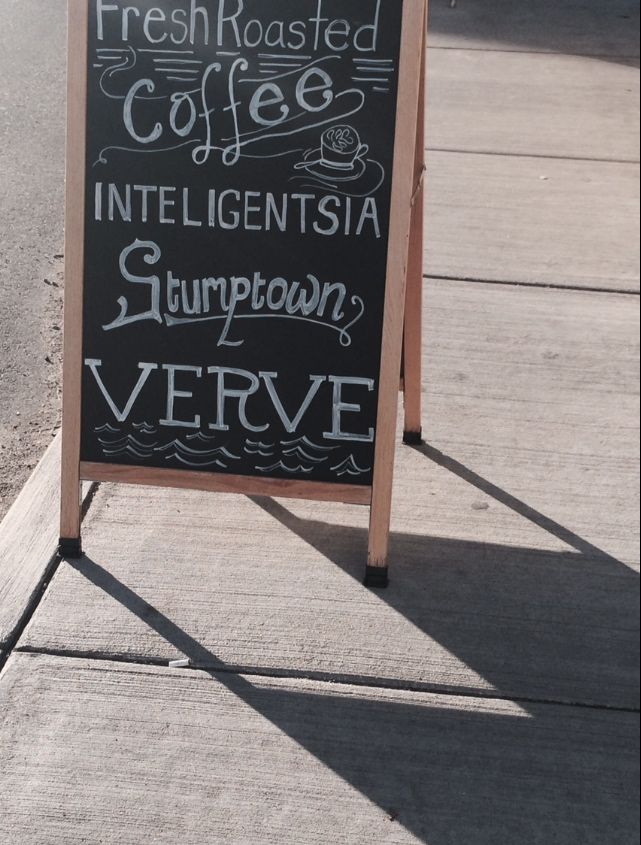 Fresh Roasted
Coffee
INTELIGENTSIA
Stumptown
VERVE